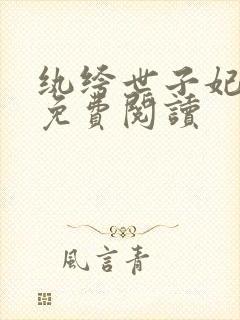 纨绔世子妃
免費閱讀
風言青